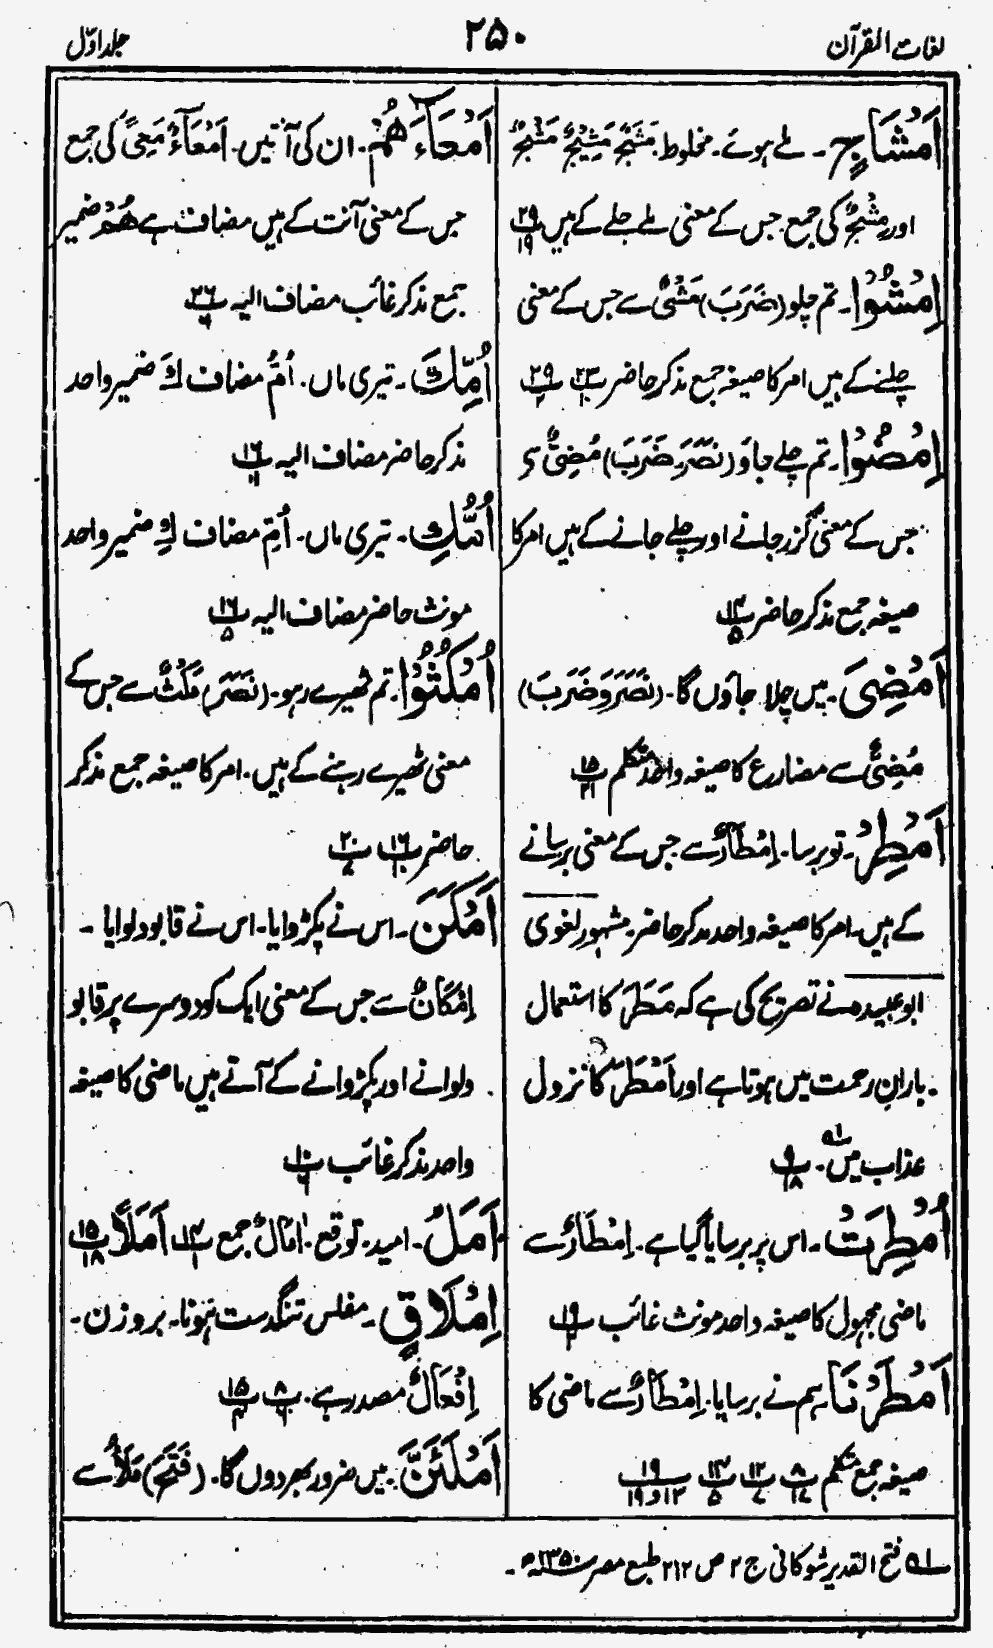 لغات القرآن
۲۵۰
جلد اوّل
اَمْشَاجٍ۔ ملے ہوئے۔ مخلوط۔ مَشَجٌ مَشِیْجٌ مَشْجٌ
اور مِشْجٌ کی جمع۔ جس کے معنی ملے جلے کے ہیں پ۲۹ ۱۹
اِمْشُوْا۔ تم چلو (ضَرَبَ) مَشْیٌ سے جس کے معنی
چلنے کے ہیں امر کا صیغہ جمع مذکر حاضر پ۲۳ ۱۰ پ۲۹ ۲
اِمْضُوْا۔ تم چلے جاؤ (نَصَرَ۔ ضَرَبَ) مُضِیٌّ سے
جس کے معنی گزر جانے اور چلے جانے کے ہیں امر کا
صیغہ جمع مذکر حاضر پ۱۴ ۵
اَمْضِیَ۔ میں چلا جاؤں گا۔ (نَصَرَ وَضَرَبَ)
مُضِیٌّ سے مضارع کا صیغہ واحد متکلم پ۱۵ ۲۱
اَمْطِرْ۔ تو برسا۔ اِمْطَارٌ سے جس کے معنی برسانے
کے ہیں۔ امر کا صیغہ واحد مذکر حاضر۔ مشہور لغوی
ابو عبیدہ نے تصریح کی ہے کہ مَطَرَ کا استعمال
بارانِ رحمت میں ہوتا ہے اور اَمْطَرَ کا نزول
عذاب میں۔ ۱ پ۹ ۱۸
اُمْطِرَتْ۔ اس پر برسایا گیا ہے۔ اِمْطَارٌ سے
ماضی مجہول کا صیغہ واحد مونث غائب پ۱۹ ۲
اَمْطَرْنَا۔ ہم نے برسایا۔ اِمْطَارٌ سے ماضی کا
صیغہ جمع متکلم پ۸ ۱۷ پ۱۲ ۷ پ۱۴ ۵ پ۱۹ ۱۲ و ۱۹
اَمْعَآءَھُمْ۔ ان کی آنتیں۔ اَمْعَآءٌ مَعِیٌ کی جمع
جس کے معنی آنت کے ہیں مضاف ہے ھُمْ ضمیر
جمع مذکر غائب مضاف الیہ پ۲۶ ۶
اُمِّكَ۔ تیری ماں۔ اُمِّ مضاف كَ ضمیر واحد
مذکر حاضر مضاف الیہ پ۱۶ ۱۱
اُمُّكِ۔ تیری ماں۔ اُمِّ مضاف كِ ضمیر واحد
مونث حاضر مضاف الیہ پ۱۶ ۵
اُمْكُثُوْا۔ تم ٹھیرے رہو۔ (نَصَرَ) مَکْثٌ سے جس کے
معنی ٹھیرے رہنے کے ہیں۔ امر کا صیغہ جمع مذکر
حاضر پ۱۶ ۱۰ پ۲۰ ۷
اَمْكَنَ۔ اس نے پکڑوایا۔ اس نے قابو دلوایا۔
اِمْکَانٌ سے جس کے معنی ایک کو دوسرے پر قابو
دلوانے اور پکڑوانے کے آتے ہیں ماضی کا صیغہ
واحد مذکر غائب پ۱۰ ۶
اَمَلٌ۔ امید۔ توقع۔ اٰمَالٌ جمع پ۱۴ ۱ اَمَلًا پ۱۵ ۱۸
اِمْلَاقٍ۔ مفلس تنگدست ہونا۔ بروزن۔
اِفْعَالٌ مصدر ہے۔ پ۸ ۶ پ۱۵ ۴
اَمْلَئَنَّ۔ میں ضرور بھر دوں گا۔ (فَتَحَ) مَلْأٌ سے
۱؎ فتح القدیر شوکانی ج ۲ ص ۲۱۲ طبع مصر ۱۳۵۰ھ۔